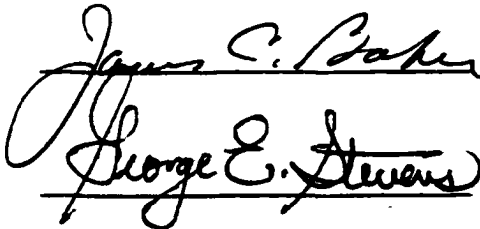 James C. Baker
George E. Stevens